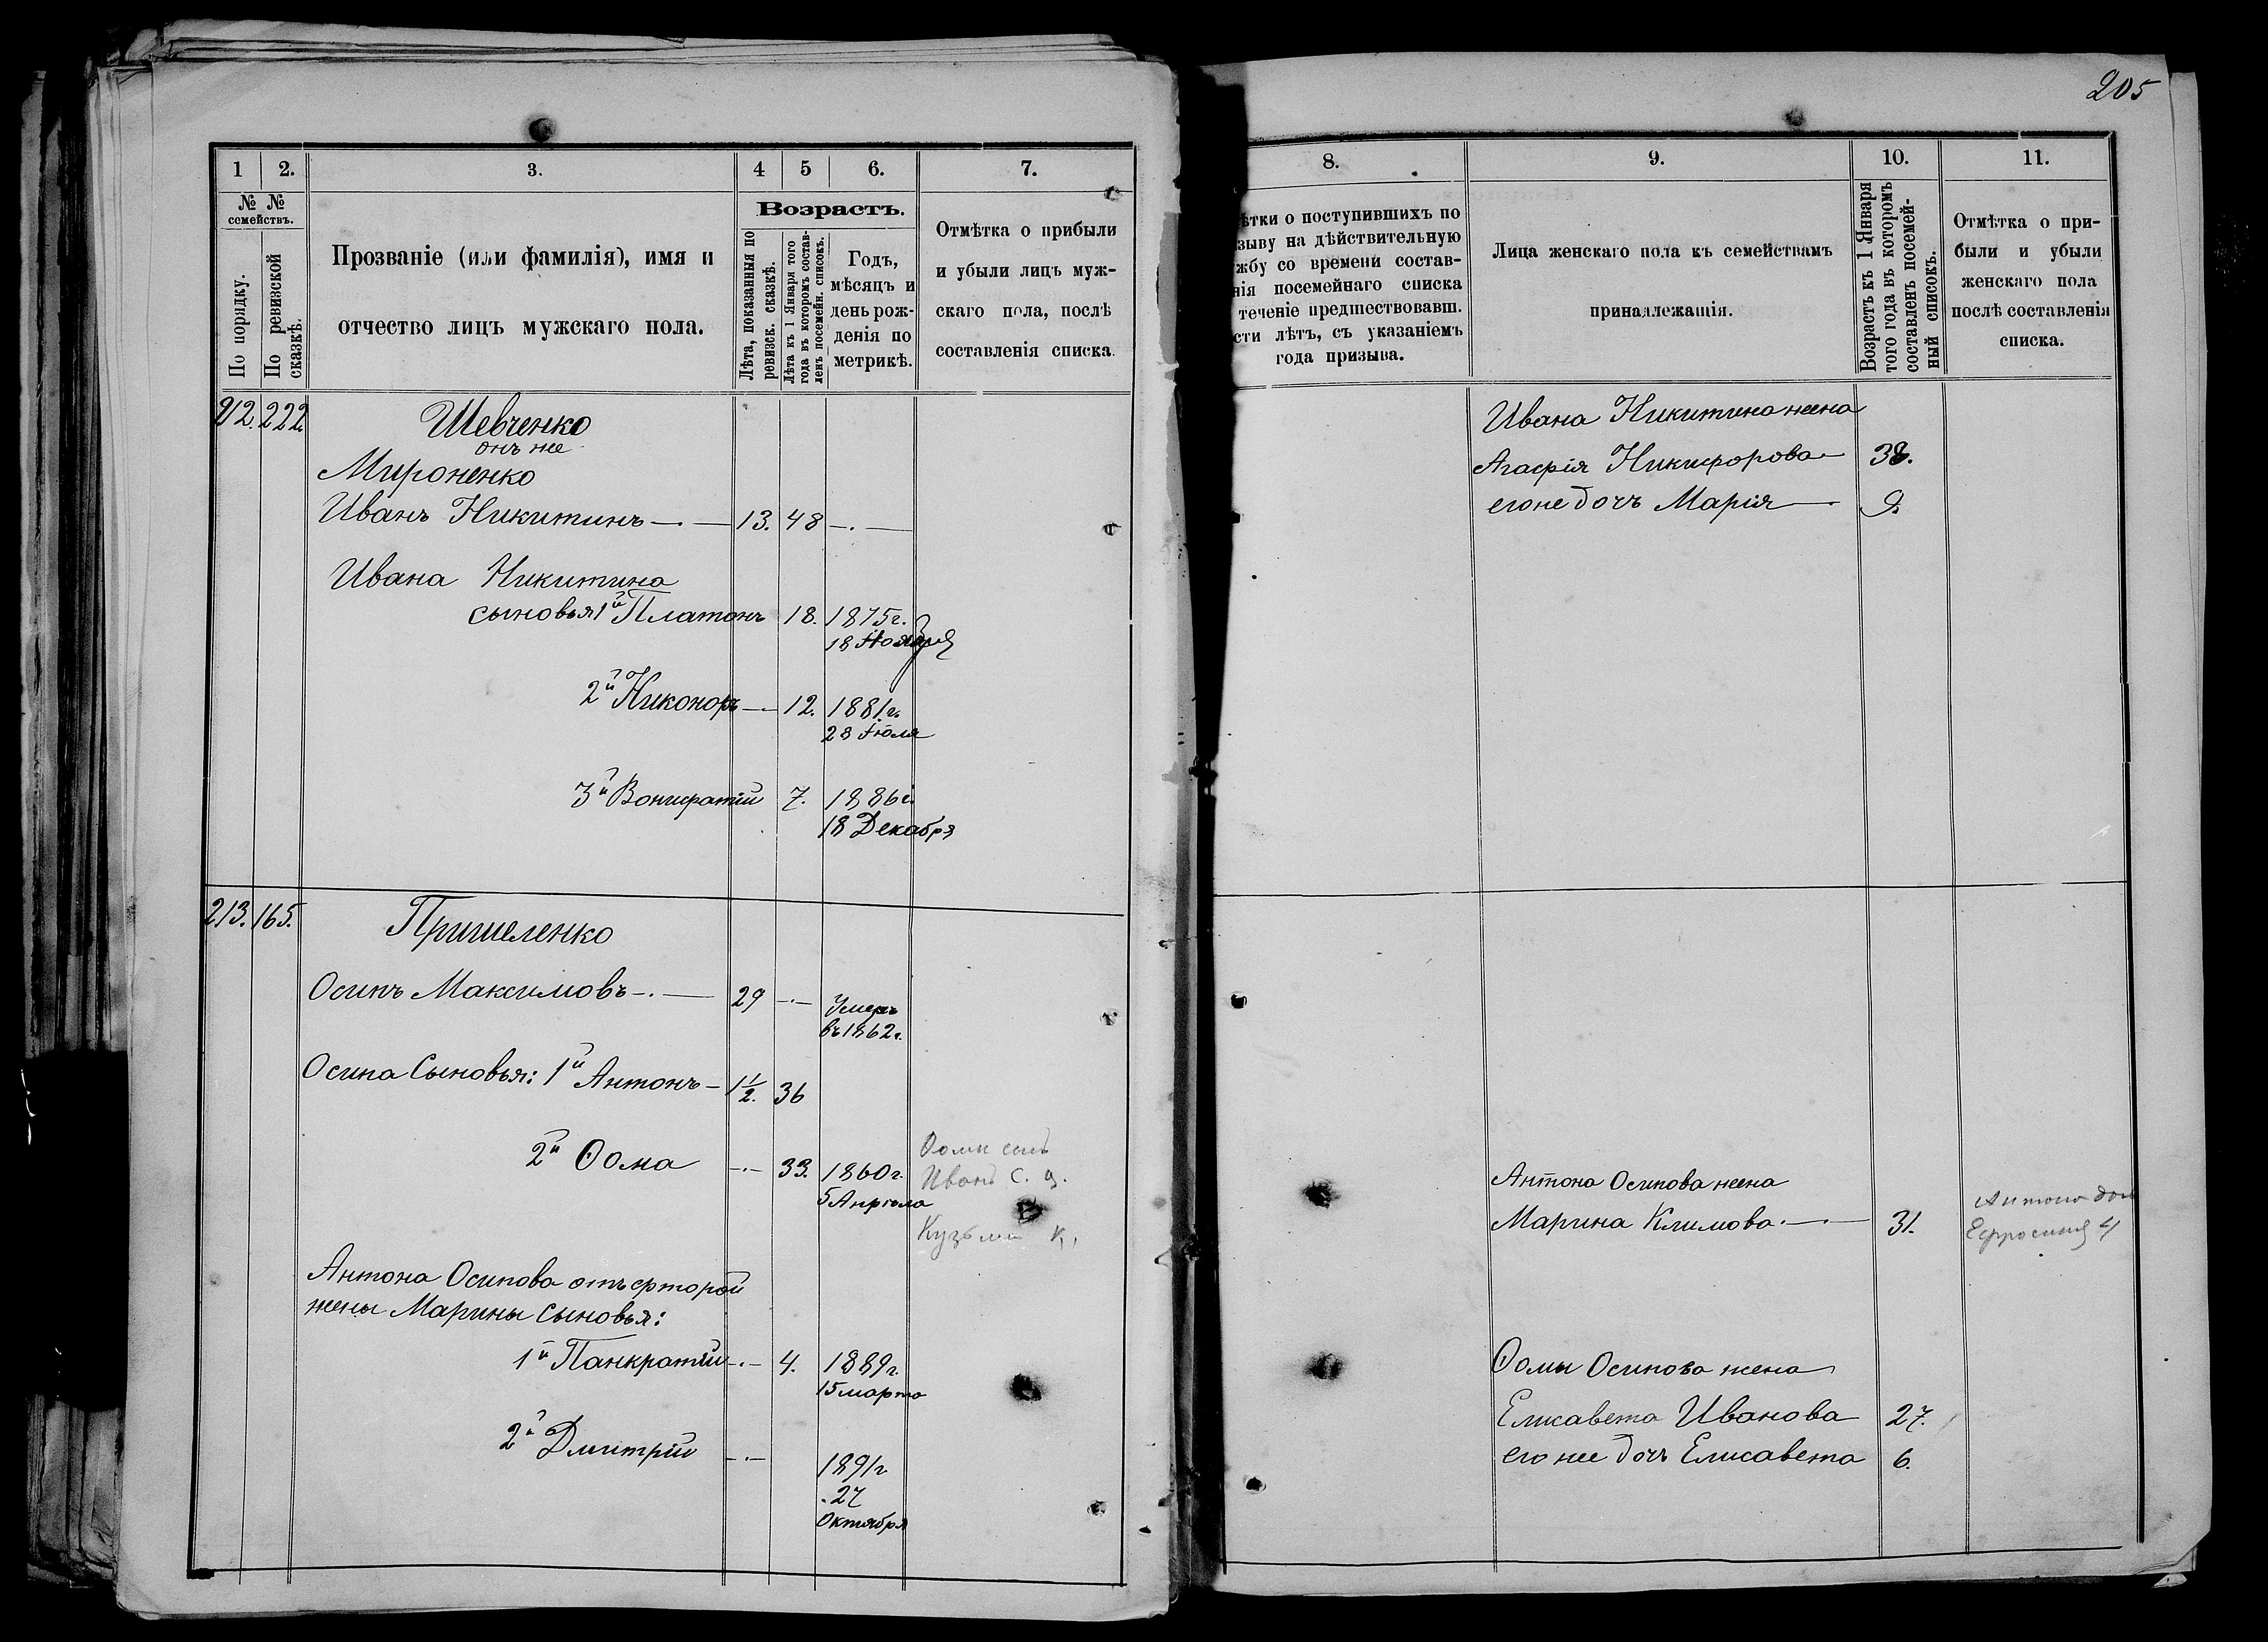 205
1 2. 3. 4 5 6. 7.
№ № семействъ.
По порядку.
По ревизской сказкѣ.
Прозваніе (или фамилія), имя и
отчество лицъ мужскаго пола.
Возрастъ.
Лѣта, показанныя по
ревизск. сказкѣ.
Лѣта къ 1 Января того
года въ которомъ состав-
ленъ посемейн. списокъ.
Годъ,
мѣсяцъ и
день рож-
денія по
метрикѣ.
Отмѣтка о прибыли
и убыли лицъ муж-
скаго пола, послѣ
составленія списка.
212. 222.
Шевченко
онъ же
Мироненко
Иванъ Никитинъ 13. 48
Ивана Никитина
сыновья 1й Платонъ 18. 1875г.
18 Ноября
2й Никоноръ 12. 1881г.
28 Іюля
3й Вонифатій 7. 1886г.
18 Декабря
213. 165.
Пришеленко
Осипъ Максимовъ 29 Умеръ
въ 1862г.
Осипа Сыновья: 1й Антонъ 1½. 36
2й Ѳома 33. 1860г.
5 Апрѣля
Ѳомы сынъ
Иванъ
Кузьма
Антона Осипова отъ второй
жены Марины сыновья:
1й Панкратій 4. 1889г.
15 марта
2й Дмитрій 1891г
27
Октября
8. 9. 10. 11.
ѣтки о поступившихъ по
зыву на дѣйствительную
жбу со времени состав-
нія посемейнаго списка
теченіе предшествовавш.
сти лѣтъ, съ указаніемъ
года призыва.
Лица женскаго пола къ семействамъ
принадлежащія.
Возрастъ къ 1 Января
того года въ которомъ
составленъ посемей-
ный списокъ.
Отмѣтка о при-
были и убыли
женскаго пола
послѣ составленія
списка.
Ивана Никитина жена
Агафія Никифорова 38.
его же дочъ Марія 9.
Антона Осипова жена
Марина Климова 31.
Антона доч
Ефросинія 4
Ѳомы Осипова жена
Елисавета Иванова 27.
его же дочъ Елисавета 6.